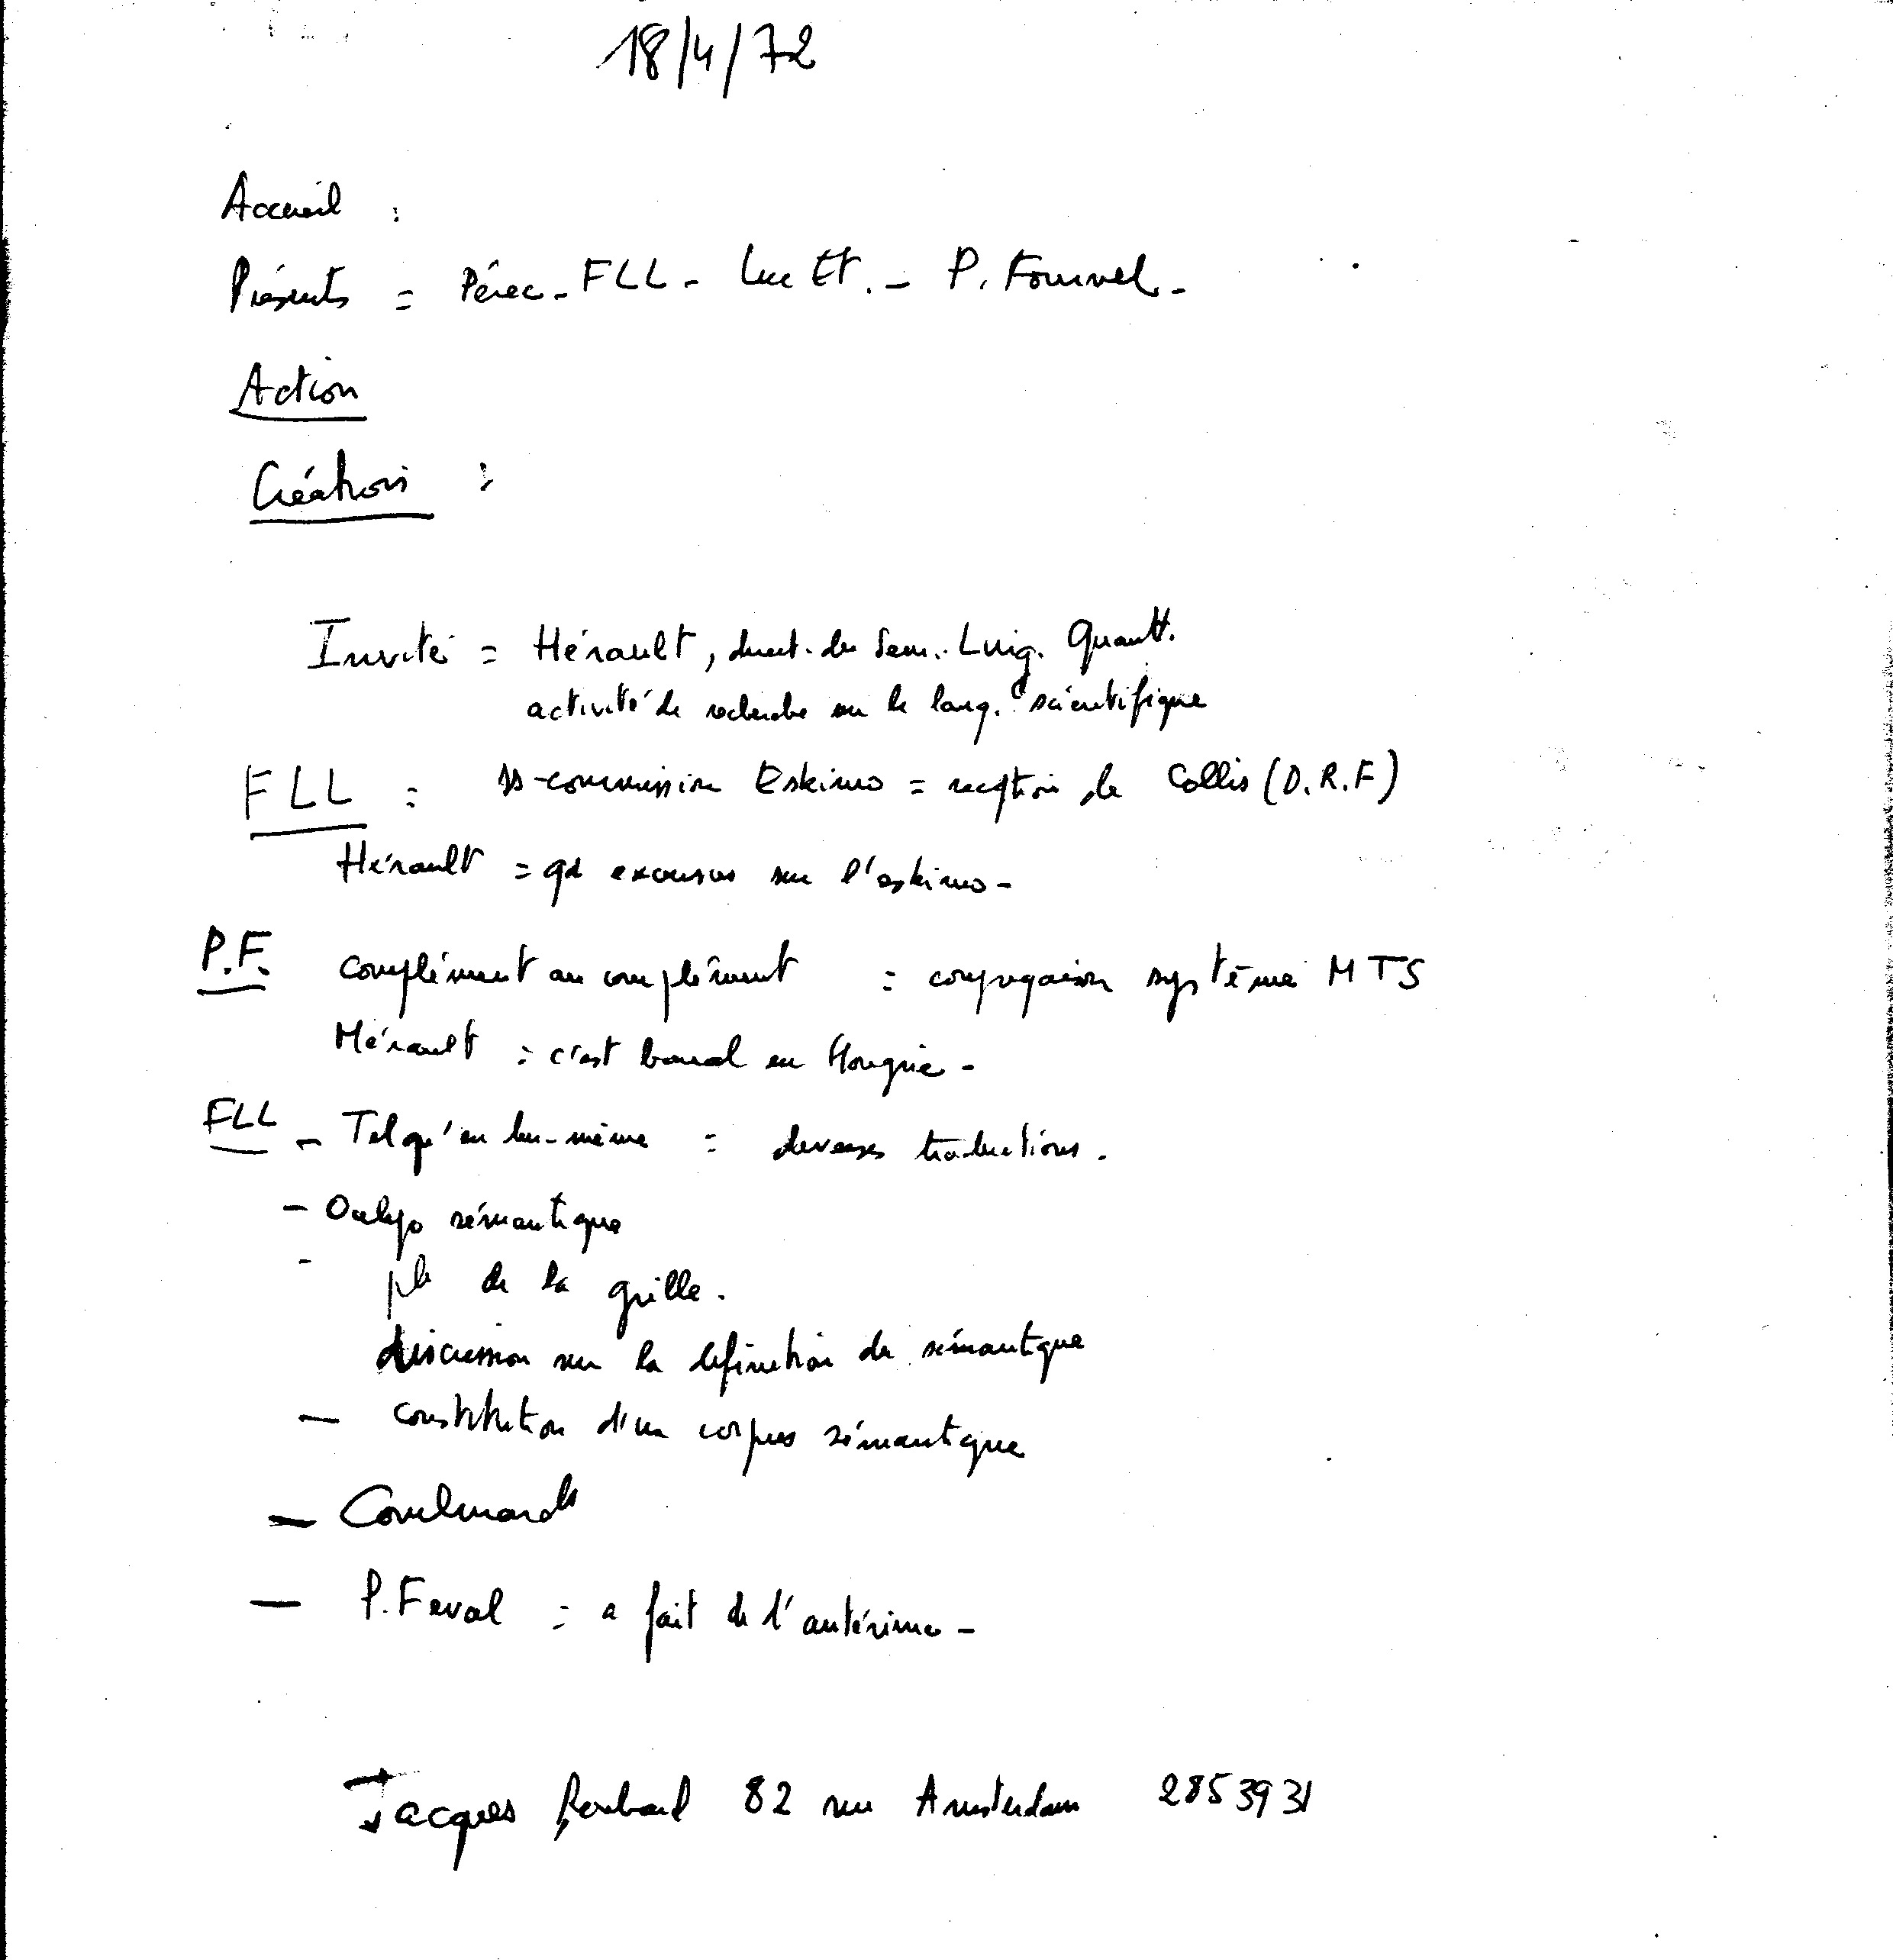 18/4/72
Accueil :
Présents = Pérec - FLL - Luc Et. - P. Fournel -
Action
Créations :
Invité = Hérault, direct. du Sem. Ling. Quantt.
activité de recherche sur le lang. scientifique
FLL : ss-commission Eskimo = réception de Collis (D.R.F)
Hérault = gd excursus sur l'eskimo -
P.F. complément au complément : conjugaison système MTS
Hérault : c'est banal en Hongrie -
FLL - Tel qu'en lui-même = diverses traductions.
- Oulipo sémantique
- pb de la grille.
discussion sur la définition de sémantique
- constitution d'un corpus sémantique
-
- P. Feval = a fait de l'antérime -
Jacques Roubaud 82 rue Amsterdam 2853931